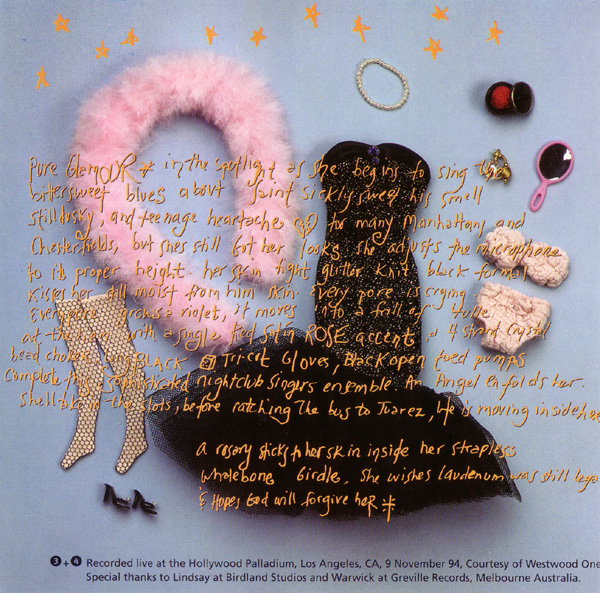 Pure GlamOUR * in the spotlight as she begins to sing the
bittersweet blues about faint sickly sweet his smell
still dusky, and teenage heartache, too many Manhattans and
Chesterfields, but shes still Got her looks. she adjusts the microphone
to its proper height. her skin tight glitter knit black formel
kisses her still moist from him skin. Every pore is crying
Everyone grows a violet, it moves into a frill of tulle
out the with a single Red Satin ROSE accent. a 4 strand crystal
bead choker, long BLACK Tricot Gloves, Black open toed pumps
Complete this sophisticated nightclub singers ensemble. An Angel enfolds her.
Shell at the slots, before catching the bus to Juarez, life is moving inside her
a rosary sticks to her skin inside her strapless
whalebone Girdle, She wishes laudenum was still legal
& Hopes God will forgive heR *
3 + 4 Recorded live at the Hollywood Palladium, Los Angeles, CA, 9 November 94, Courtesy of Westwood One
Special thanks to Lindsay at Birdland Studios and Warwick at Greville Records, Melbourne Australia.